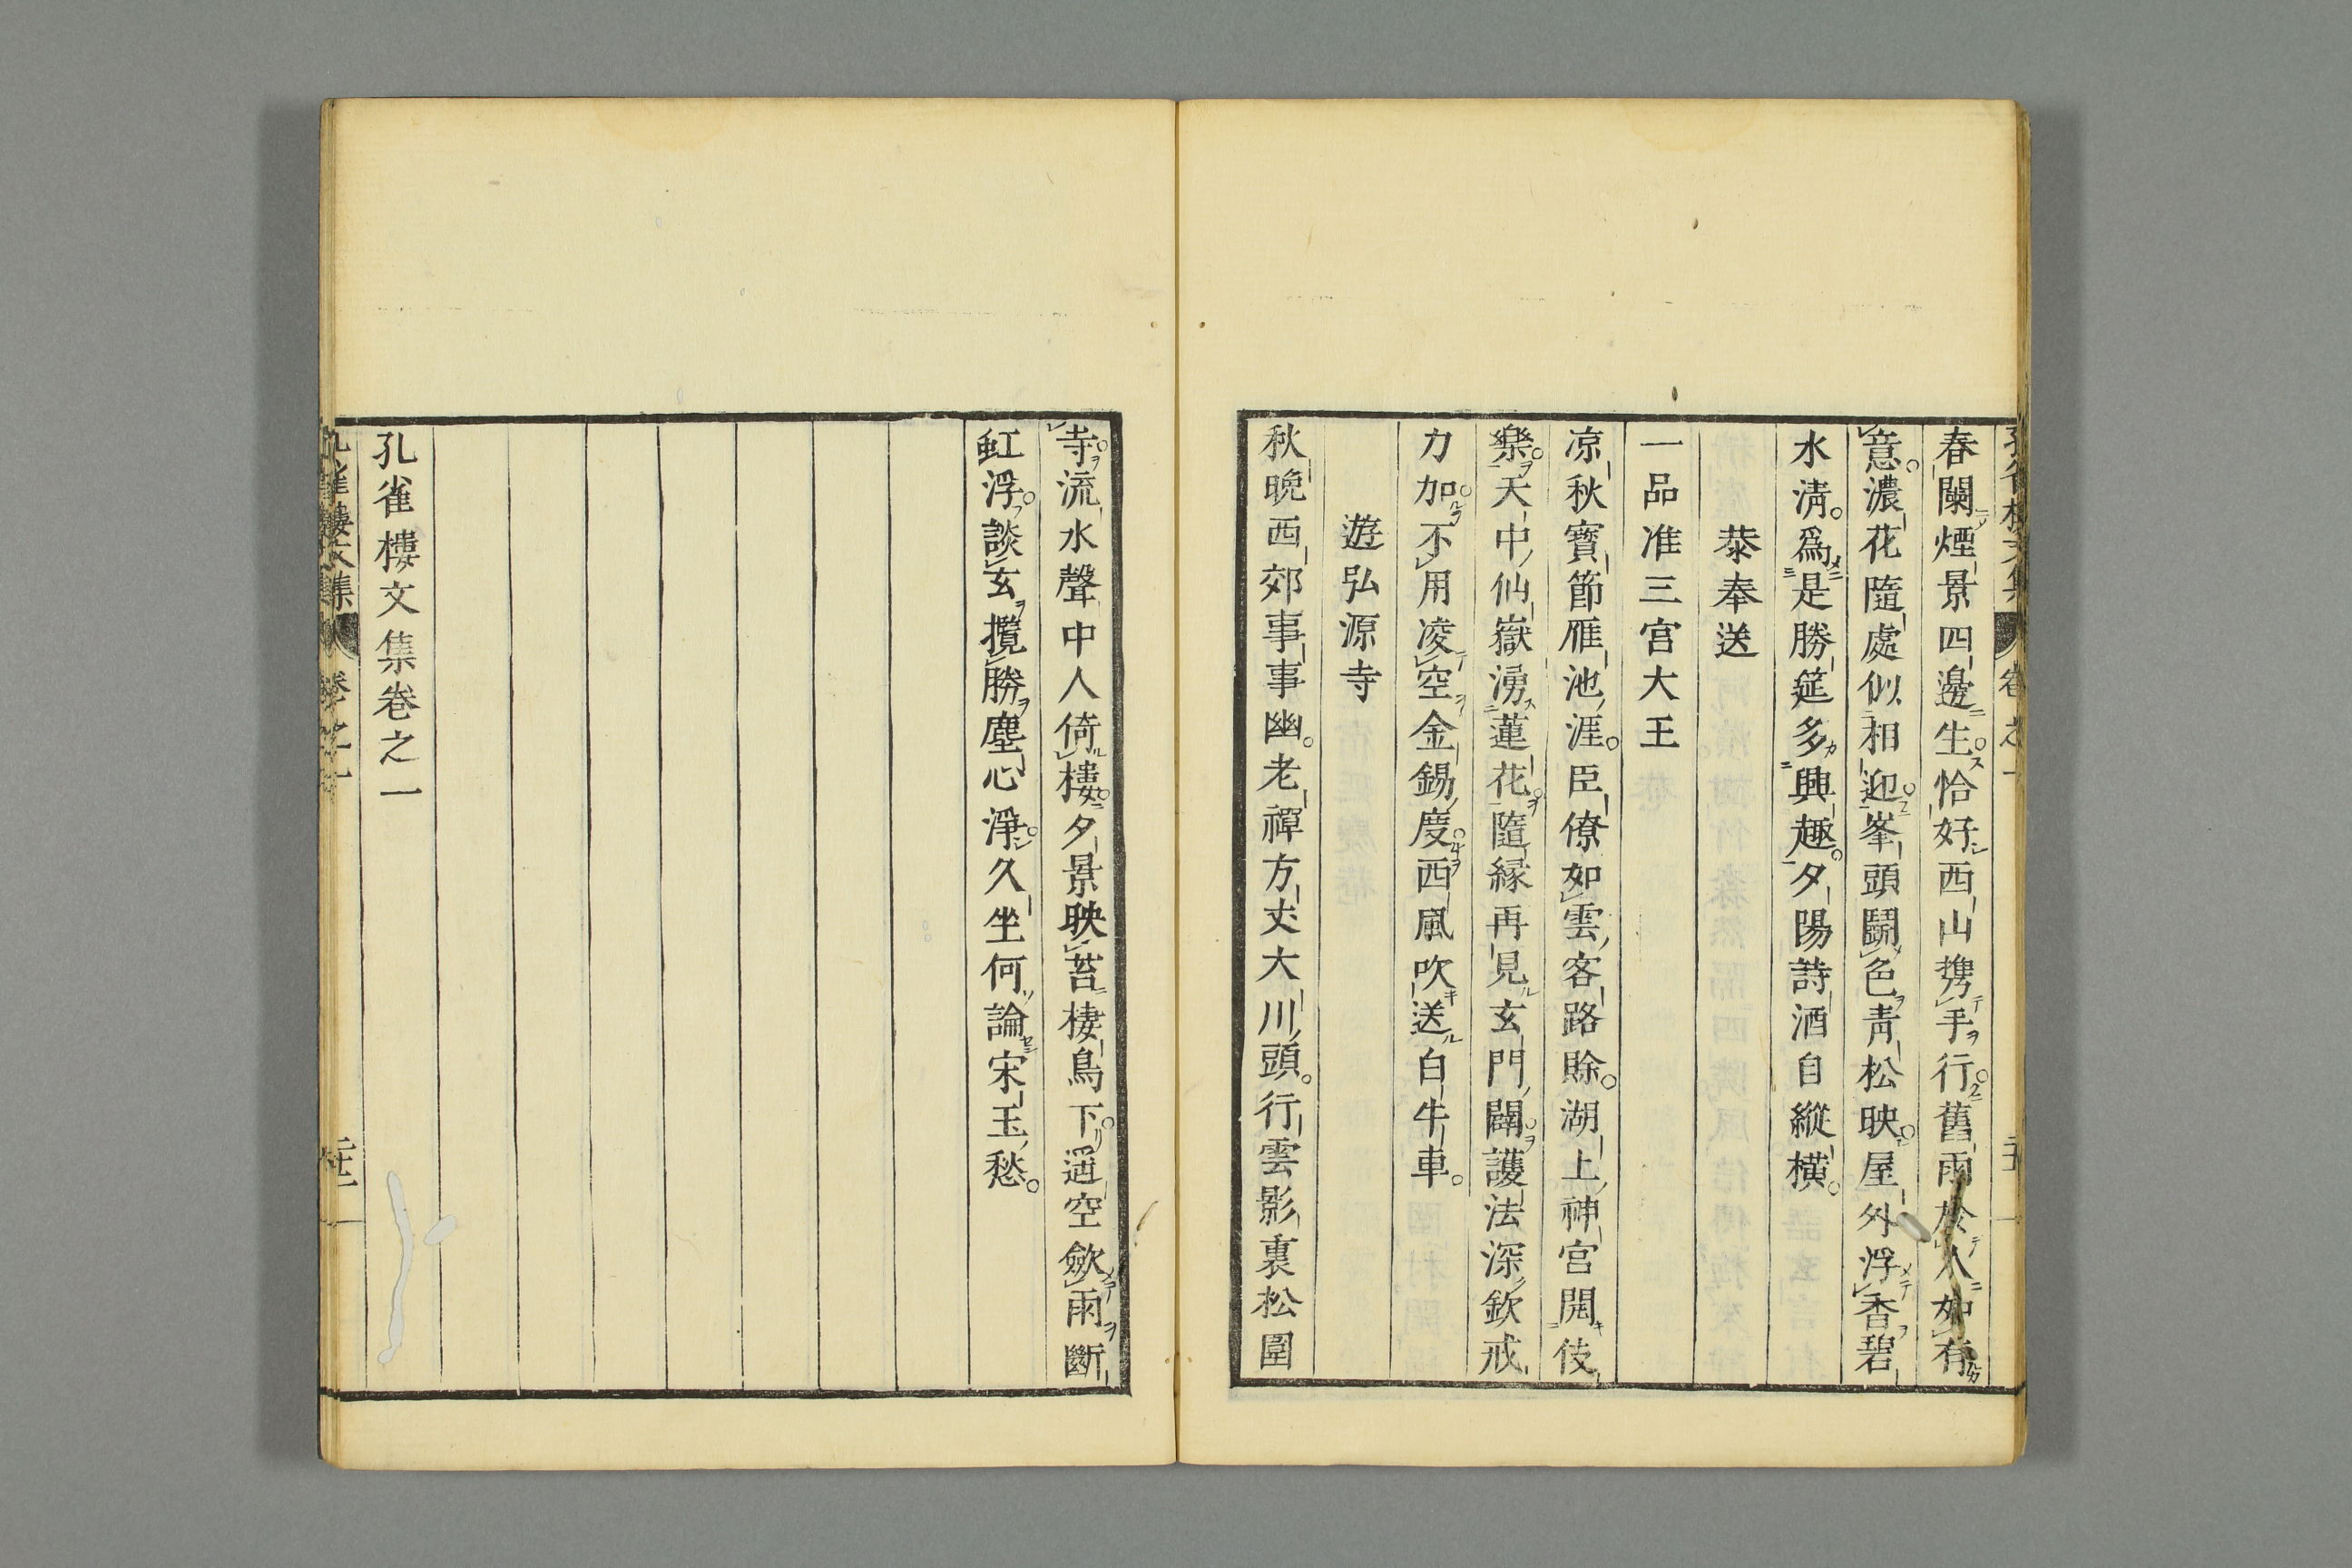 春闌煙景四邊生恰好西山携手行舊雨於人如有
意濃花隨處似相迎峯頭鬪色靑松映屋外浮香碧
水淸爲是勝筵多興趣夕陽詩酒自縱橫
恭奉送
一品准三宮大王
凉秋寶節雁池涯臣僚如雲客路賒湖上神宮開伎
樂天中仙嶽湧蓮花隨緣再見玄門闢護法深欽戒
力加不用凌空金錫度西風吹送白牛車
遊弘源寺
秋晚西郊事事幽老禪方丈大川頭行雲影裏松圍
寺流水聲中人倚樓夕景映苔棲鳥下遥空歛雨斷
虹浮談玄攬勝塵心淨久坐何論宋玉愁
孔雀樓文集卷之一
孔雀樓文集 卷之一